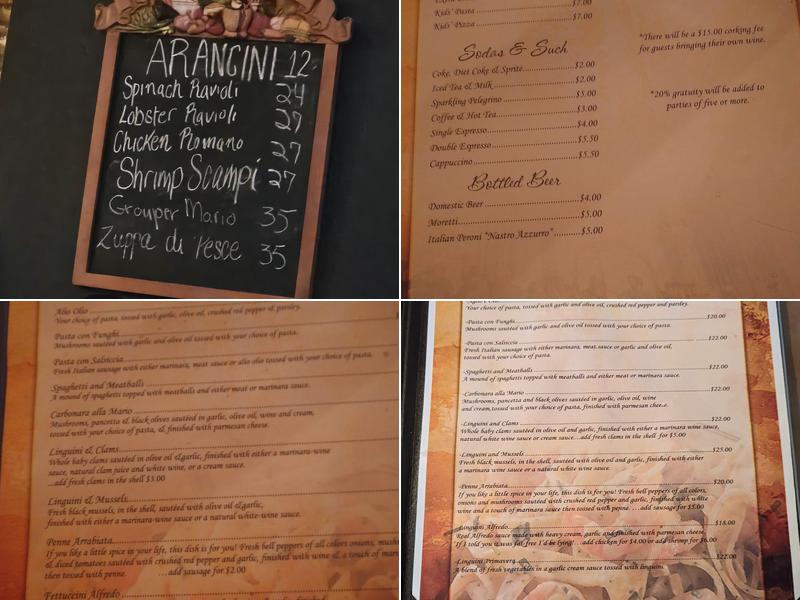 ARANCINI 12
Spinach Ravioli 24
Lobster Ravioli 27
Chicken Romano 27
Shrimp Scampi 27
Grouper Mario 35
Zuppa di Pesce 35
Kids' Pasta $7.00
Kids' Pizza $7.00
Sodas & Such
Coke, Diet Coke & Sprite $2.00
Iced Tea & Milk $2.00
Sparkling Pelegrino $5.00
Coffee & Hot Tea $3.00
Single Espresso $4.00
Double Espresso $5.50
Cappuccino $5.50
Bottled Beer
Domestic Beer $4.00
Moretti $5.00
Italian Peroni "Nastro Azzurro" $5.00
*There will be a $15.00 corking fee
for guests bringing their own wine.
*20% gratuity will be added to
parties of five or more.
Alio Olio
Your choice of pasta, tossed with garlic, olive oil, crushed red pepper & parsley.
Pasta con Funghi
Mushrooms sautéed with garlic and olive oil tossed with your choice of pasta.
Pasta con Salsiccia
Fresh Italian sausage with either marinara, meat sauce or alio olio tossed with your choice of pasta.
Spaghetti and Meatballs
A mound of spaghetti topped with meatballs and either meat or marinara sauce.
Carbonara alla Mario
Mushrooms, pancetta & black olives sautéed in garlic, olive oil, wine and cream,
tossed with your choice of pasta, & finished with parmesan cheese.
Linguini & Clams
Whole baby clams sautéed in olive oil &garlic, finished with either a marinara-wine
sauce, natural clam juice and white wine, or a cream sauce.
...add fresh clams in shell $5.00
Linguini & Mussels
Fresh black mussels, in the shell, sautéed with olive oil &garlic,
finished with either a marinara-wine sauce or a natural white-wine sauce.
Penne Arrabiata
If you like a little spice in your life, this dish is for you! Fresh bell peppers of all colors, onions, mush
& diced tomatoes sautéed with crushed red pepper and garlic, finished with wine & a touch of mar
then tossed with penne. ...add sausage for $2.00
Fettuccini Alfredo
Your choice of pasta, tossed with garlic, olive oil, crushed red pepper and parsley.
Pasta con Funghi $20.00
Mushrooms sautéed with garlic and olive oil tossed with your choice of pasta.
Pasta con Salsiccia $22.00
Fresh Italian sausage with either marinara, meat sauce or garlic and olive oil,
tossed with your choice of pasta.
Spaghetti and Meatballs $22.00
A mound of spaghetti topped with meatballs and either meat or marinara sauce.
Carbonara alla Mario $22.00
Mushrooms, pancetta and black olives sautéed in garlic, olive oil, wine
and cream, tossed with your choice of pasta, finished with parmesan cheese.
Linguini and Clams $22.00
Whole baby clams sautéed in olive oil and garlic, finished with either a marinara wine sauce,
natural white wine sauce or cream sauce...add fresh clams in the shell for $5.00
Linguini and Mussels $25.00
Fresh black mussels, in the shell, sautéed with olive oil and garlic, finished with either
a marinara wine sauce or a natural white wine sauce.
Penne Arrabiata $20.00
If you like a little spice in your life, this dish is for you! Fresh bell peppers of all colors,
onions and mushrooms sautéed with crushed red pepper and garlic, finished with white
wine and a touch of marinara sauce then tossed with penne. ...add sausage for $5.00
Linguini Alfredo $18.00
Real Alfredo sauce made with heavy cream, garlic and finished with parmesan cheese.
If I told you it was fat free I'd be lying! ...add chicken for $4.00 or add shrimp for $6.00
Linguini Primavera $22.00
A blend of fresh vegetables in a garlic cream sauce tossed with linguini.